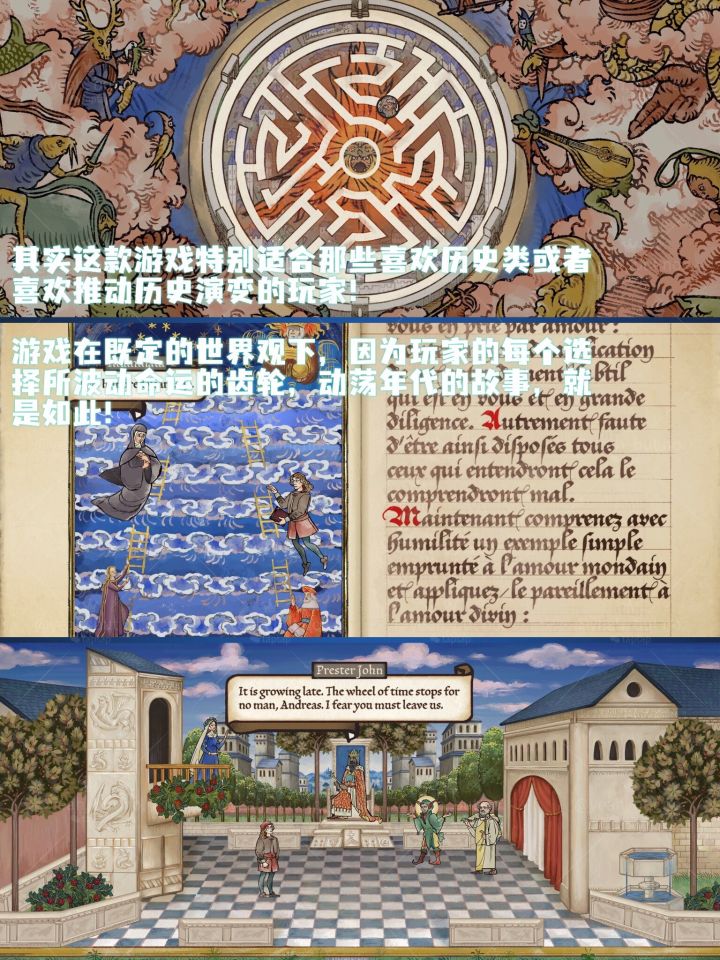 其实这款游戏特别适合那些喜欢历史类或者
喜欢推动历史演变的玩家!
游戏在既定的世界观下，因为玩家的每个选
择所波动命运的齿轮，动荡年代的故事，就
是如此!
vous en prie par amour :
qui est en vous et en grande
diligence. Autrement faute
d'être ainsi disposés tous
ceux qui entendront cela le
comprendront mal.
Maintenant comprenez avec
humilité un exemple simple
emprunté à l'amour mondain
et appliquez-le pareillement à
l'amour divin :
Prester John
It is growing late. The wheel of time stops for
no man, Andreas. I fear you must leave us.